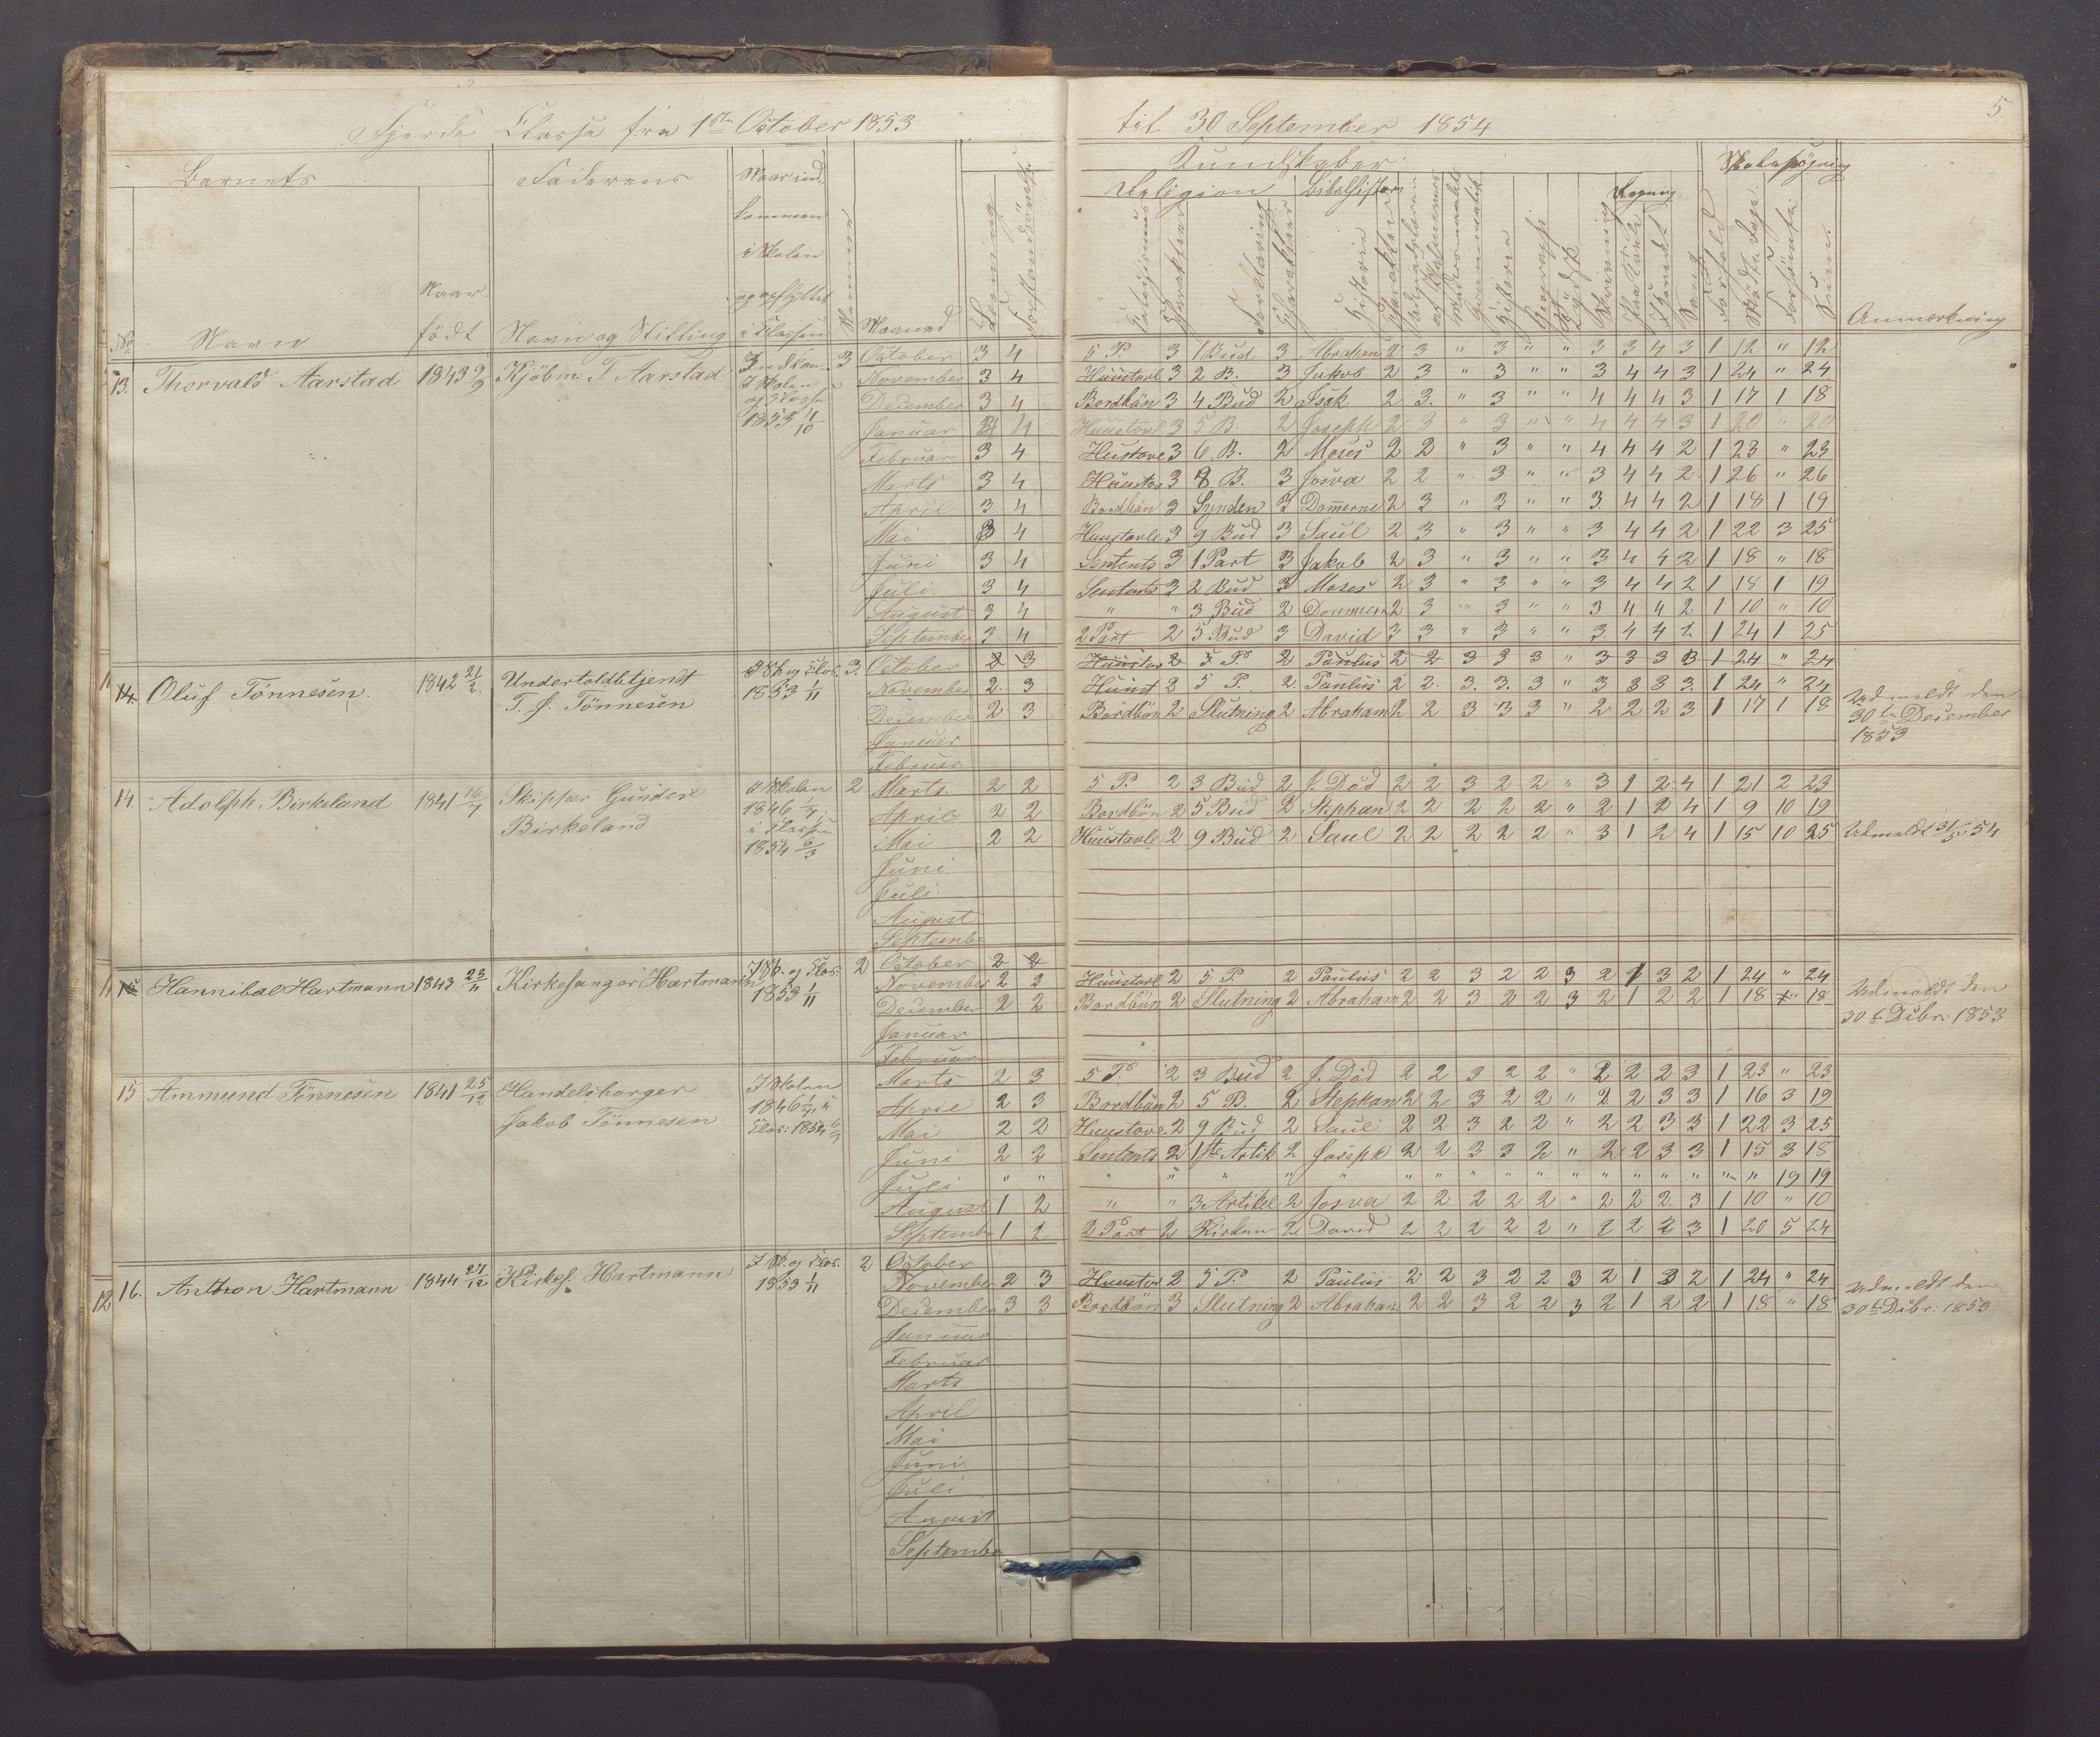 5.
Fjerde Classe fra 1ste October 1853 til 30 September 1854
Barnets Faderens Naar ind- Kundskaber Skolesøgning
kommen Religion Bibelhistorie Regning
i Skolen
Naar og opflyttet
No Navn født Navn og Stilling i Classen Nummer Maaned Læsning Anmærkning
13. Thorvald Aarstad 1843 9/9 Kjöbm. T. Aarstad 3 October 3 4 5 P. 3 1 Bud 3 Abraham 2 3 " 3 " " 3 3 4 3 1 12 " 12
I Skolen November 3 4 Huustavl 3 2 B. 3 Jakob 2 3 " 3 " " 3 4 4 3 1 24 " 24
December 3 4 Bordbön 3 4 Bud 2 Isak 2 3. " 3 " " 4 4 4 3 1 17 1 18
1853 1/10 Januar 3 4 Huustavl 3 5 B. 2 Joseph 2 3 " 3 " " 4 4 4 3 1 20 " 20
Februar 3 4 Hustave 3 6. B. 2 Moses 2 2 " 3 " " 4 4 4 2 1 23 " 23
Marts 3 4 Huustav 3 8 B. 3 Josva 2 2 " 3 " " 3 4 4 2 1 26 " 26
April 3 4 Bordbön 3 Synden 3 Domerne 2 3 " 3 " " 3 4 4 2 1 18 1 19
Mai 3 4 Huustavle 3 9 Bud 3 Saul 2 3 " 3 " " 3 4 4 2 1 22 3 25
Juni 3 4 Sentents 3 1 Part 3 Jakob 2 3 " 3 " " 3 4 4 2 1 18 " 18
Juli 3 4 Sentents 3 2 Bud 3 Moses 2 3 " 3 " " 3 4 4 2 1 18 1 19
August 3 4 " " 3 Bud 2 Dommern 2 3 " 3 " " 3 4 4 2 1 10 " 10
September 3 4 2 Part 2 5 Bud 3 David 3 3 " 3 " " 3. 4 4 2 1 24 1 25
14. Oluf Tönnesen. 1842 21/2 Undertoldbetjent I Sk. og Clas. 3. October 2 3 Huustav 2 5 P. 2 Paulus 2 2 3 3 3 " 3 3 3 3 1 24 " 24
T. J. Tönnesen 1853 1/11 November 2. 3 Huust 2 5 P. 2. Paulus 2 2. 3. 3. 3 " 3 3 3 3. 1 24 " 24 Udmeldt den
December 2 3 Bordbön 2 Slutning 2 Abraham 2 2 3 3 3 " 2 2 2 3 1 17 1 18 30te December
Januar 1853
Februar
14. Adolph Birkeland 1841 16/7 Skipper Gunder I Skolen 2 Marts 2 2 5 P. 2 3 Bud 2 J. Död 2 2 3 2 2 " 3 1 2 4 1 21 2 23
Birkeland 1846 April 2 2 Bordbön 2 5 Bud 2 Stephan 2 2 2 2 2 " 2 1 2 4 1 9 10 19
i Classen Mai 2 2 Huustavle 2 9 Bud 2 Saul 2 2 2 2 2 " 3 1 2 4 1 15 10 25 Udmeldt 31/5 54
1854 6/3 Juni
Juli
August
Septemb
15 Hannibal Hartmann 1843 23/11 Kirkesanger Hartmann I Sk. og Clas. 2 October 2 2
1853 1/11 November 2 2 Huustavl 2 5 P. 2 Paulus 2 2 3 2 2 3 2 1 3 2 1 24 " 24 Udmeldt den
December 2 2 Bordbön 2 Slutning 2 Abraham 2 2 3 2 2 3 2 1 2 2 1 18 " 18 30te Debr: 1853
Januar
Februar
15 Ammund Tönnesen 1841 25/12 Handelsborger I Skolen Marts 2 3 5 P. 2 3 Bud 2 J. Död 2 2 3 2 2 " 2 2 2 3 1 23 " 23
Jakob Tönnesen 1846 i April 2 3 Bordbön 2 5 B. 2 Stephan 2 2 3 2 2 " 2 2 3 3 1 16 3 19
Clas: 1854 6/3 Mai 2 2 Huustave 2 9 Bud 2 Saul 2 2 3 2 2 " 2 2 3 3 1 22 3 25
Juni 2 2 Sentents 2 1ste Artik 2 Joseph 2 2 3 3 2 " 2 2 3 3 1 15 3 18
Juli " " " " " " " " " " " " " " " " " " " 19 19
August 1 2 " " 3 Artikel 2 Josva 2 2 2 2 2 " 2 2 2. 3 1 10 " 10
Septemb 1 2 2 Part 2 Kirken 2 David 2 2 2 2 2 " 2 2 2 3 1 20 5 24
12 16. Anthon Hartmann 1844 27/12 Kirkes. Hartmann I Sk. og Clas. 2 October
1853 1/11 November 2 3 Huustav 2 5 P. 2 Paulus 2 2 3 2 2 3 2 1 3 2 1 24 " 24 Udmeldt den
December 3 3 Bordbön 3 Slutning 2 Abraham 2 2 3 2 2 3 2 1 2 2 1 18 " 18 30te Debr: 1853
Januar
Februar
Marts
April
Mai
Juni
Juli
August
Septembe